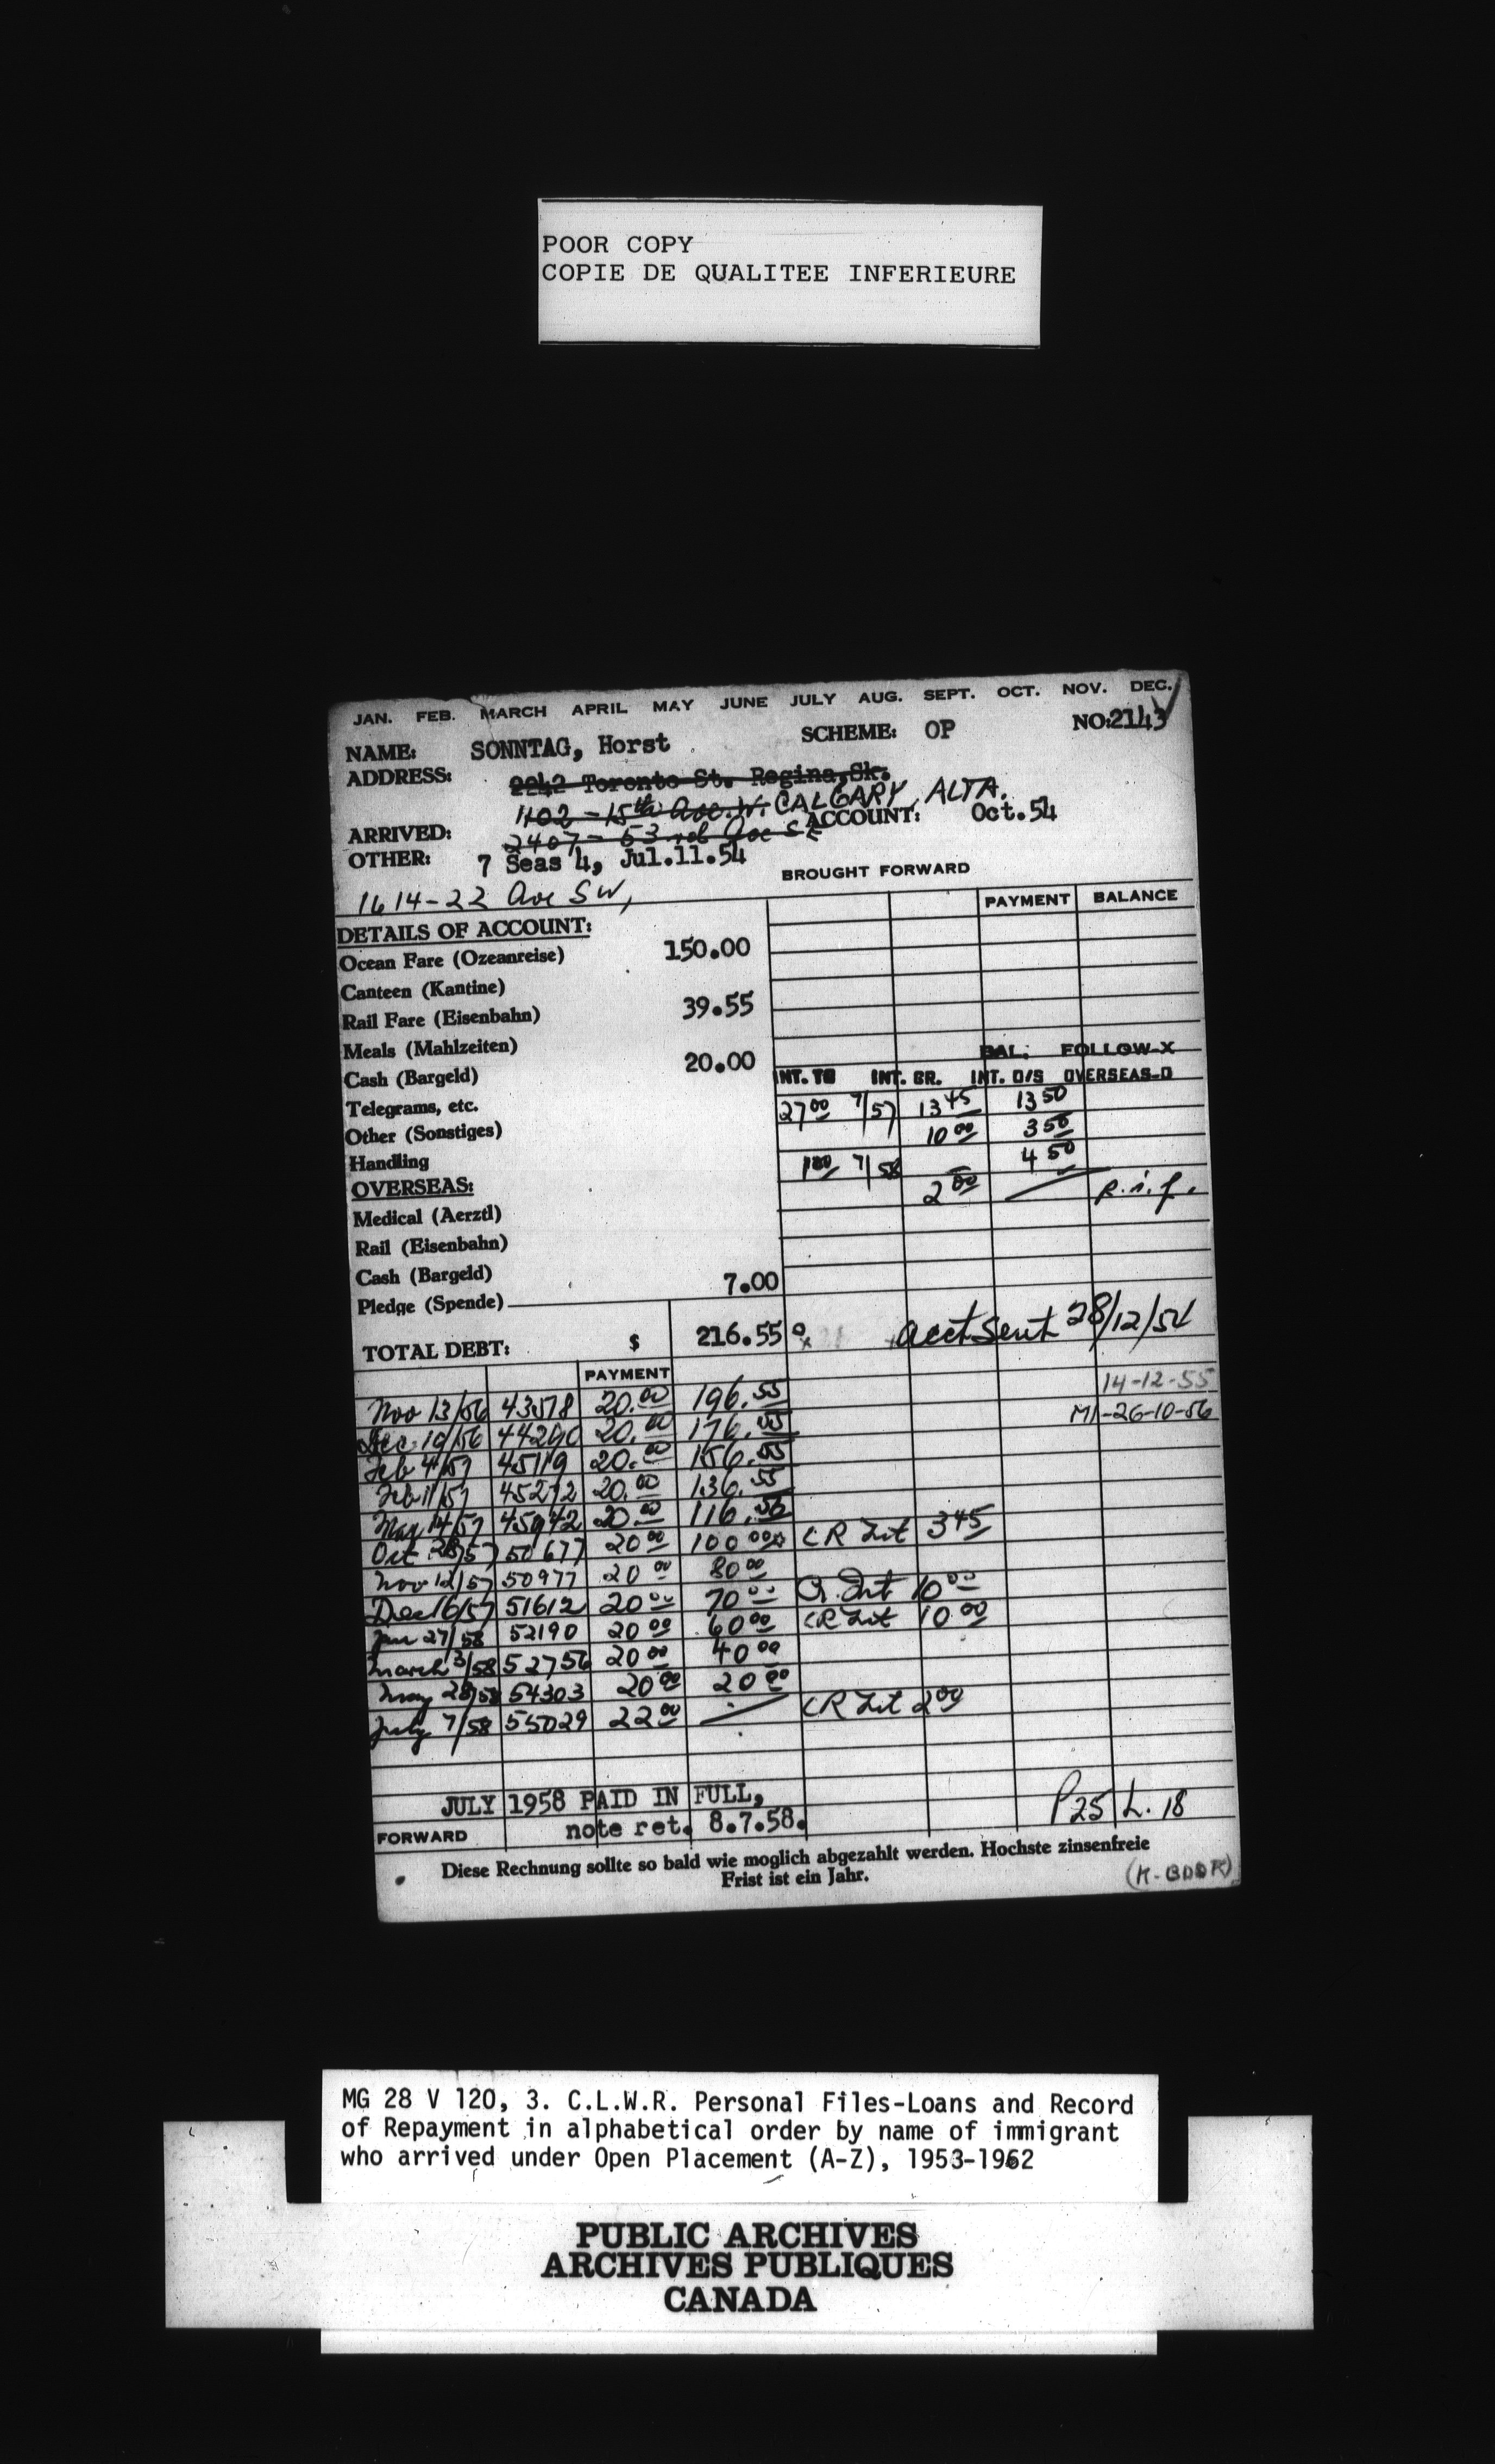 POOR COPY
COPIE DE QUALITEE INFERIEURE
JAN. FEB. MARCH APRIL MAY JUNE JULY AUG. SEPT. OCT. NOV. DEC.
NAME: SONNTAG, Horst SCHEME: OP NO: 2143
ADDRESS: 2242 Toronto St. Regina, Sk.
1102 - 15th Ave. W. CALGARY, ALTA.
ARRIVED: 2407 - 53rd Ave SE ACCOUNT: Oct. 54
OTHER: 7 Seas 4, Jul.11.54
1614-22 Ave SW, BROUGHT FORWARD
PAYMENT BALANCE
DETAILS OF ACCOUNT:
Ocean Fare (Ozeanreise) 150.00
Canteen (Kantine)
Rail Fare (Eisenbahn) 39.55
Meals (Mahlzeiten) BAL: FOLLOW-X
Cash (Bargeld) 20.00 INT. TO INT. CR. INT. O/S OVERSEAS-O
Telegrams, etc. 27 00 7/57 13 45 13 50
Other (Sonstiges) 10 00 3 50
Handling 7/58 4 50
OVERSEAS: 2 00 p.i.f.
Medical (Aerztl)
Rail (Eisenbahn)
Cash (Bargeld)
Pledge (Spende) 7.00
TOTAL DEBT: $ 216.55 acct sent 28/12/54
PAYMENT
14-12-55
Nov 13/56 43578 20.00 196.55 MI-26-10-56
Dec 10/56 44290 20.00 176.55
Feb 4/57 45119 20.00 156.55
Feb 11/57 45272 20.00 136.55
May 14/57 45942 20.00 116.55
Oct 28/57 50677 20 00 100 00 CR Int 3 45
Nov 12/57 50977 20 00 80 00
Dec 16/57 51612 20 00 70 00 Cr. Int 10 00
Jan 27/58 52190 20 00 60 00 CR Int 10 00
March 3/58 52756 20 00 40 00
May 28/58 54303 20 00 20 00
July 7/58 55029 22 00 CR Int 2 00
JULY 1958 PAID IN FULL,
note ret. 8.7.58. P25 L. 18
FORWARD
Diese Rechnung sollte so bald wie moglich abgezahlt werden. Hochste zinsenfreie
Frist ist ein Jahr.
MG 28 V 120, 3. C.L.W.R. Personal Files-Loans and Record
of Repayment in alphabetical order by name of immigrant
who arrived under Open Placement (A-Z), 1953-1962
PUBLIC ARCHIVES
ARCHIVES PUBLIQUES
CANADA